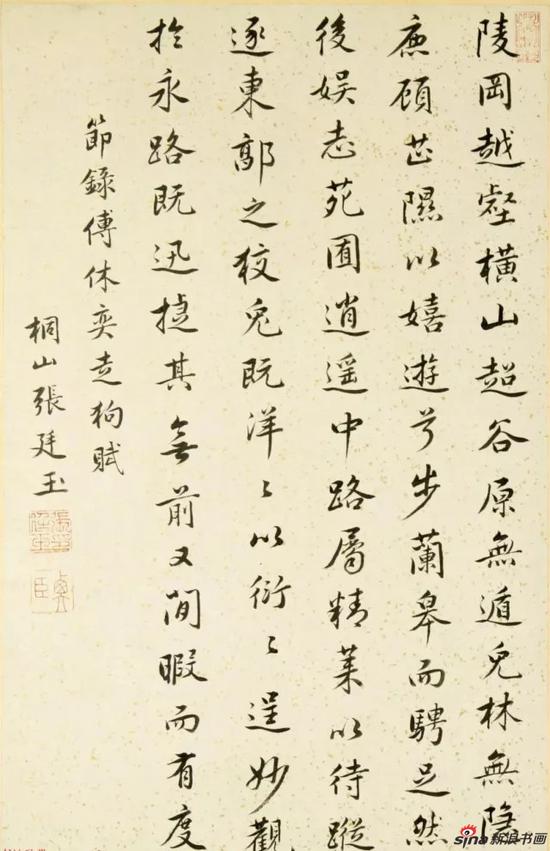 陵岡越壑橫山超谷原無遁兔林無隱
鹿顧芷隰以嬉遊兮步蘭皋而騁足然
後娛志苑囿逍遥中路屬精萊以待蹤
逐東郭之狡兔既洋〻以衍〻逞妙觀
於永路既迅捷其無前又閒暇而有度
節錄傅休奕走狗賦
桐山張廷玉
sina新浪书画